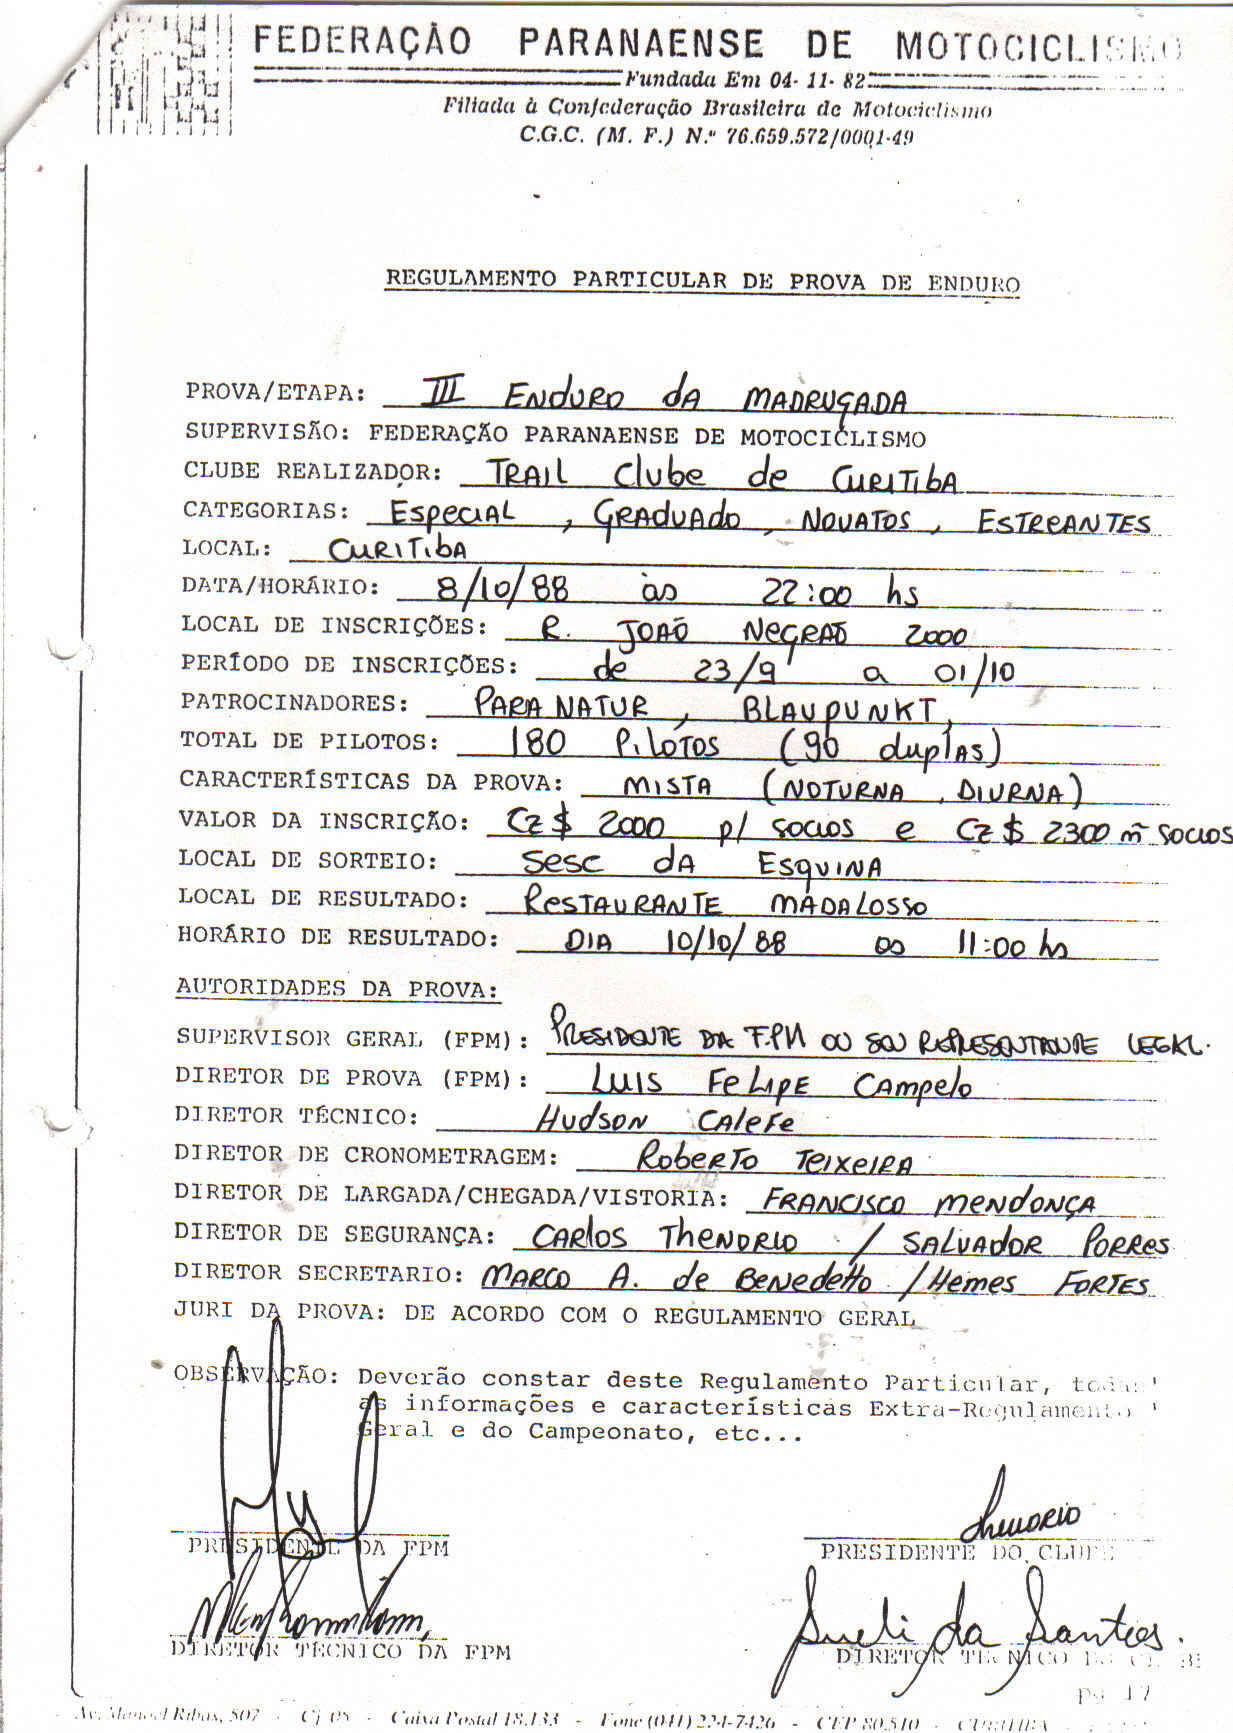 FEDERAÇÃO PARANAENSE DE MOTOCICLISMO
Fundada Em 04-11-82
Filiada à Confederação Brasileira de Motociclismo
C.G.C. (M. F.) N.º 76.659.572/0001-49
REGULAMENTO PARTICULAR DE PROVA DE ENDURO
PROVA/ETAPA: III ENDURO DA MADRUGADA
SUPERVISÃO: FEDERAÇÃO PARANAENSE DE MOTOCICLISMO
CLUBE REALIZADOR: TRAIL Clube de CURITIBA
CATEGORIAS: ESPECIAL, GRADUADO, NOVATOS, ESTREANTES
LOCAL: CURITIBA
DATA/HORÁRIO: 8/10/88 às 22:00 hs
LOCAL DE INSCRIÇÕES: R. JOÃO NEGRÃO 2000
PERÍODO DE INSCRIÇÕES: de 23/9 a 01/10
PATROCINADORES: PARANATUR, BLAUPUNKT,
TOTAL DE PILOTOS: 180 PILOTOS (90 duplAS)
CARACTERÍSTICAS DA PROVA: MISTA (NOTURNA, DIURNA)
VALOR DA INSCRIÇÃO: CZ$ 2000 p/ SOCIOS e CZ$ 2300 ñ SOCIOS
LOCAL DE SORTEIO: SESC DA ESQUINA
LOCAL DE RESULTADO: RESTAURANTE MADALOSSO
HORÁRIO DE RESULTADO: DIA 10/10/88 as 11:00 hs
AUTORIDADES DA PROVA:
SUPERVISOR GERAL (FPM): PRESIDENTE DA F.P.M OU SEU REPRESENTANTE LEGAL.
DIRETOR DE PROVA (FPM): LUIS FELIPE CAMPELO
DIRETOR TÉCNICO: HUDSON CALEFE
DIRETOR DE CRONOMETRAGEM: ROBERTO TEIXEIRA
DIRETOR DE LARGADA/CHEGADA/VISTORIA: FRANCISCO MENDONÇA
DIRETOR DE SEGURANÇA: CARLOS THENORIO / SALVADOR PORRES
DIRETOR SECRETARIO: MARCO A. de BENEDETTO / HEMES FORTES
JURI DA PROVA: DE ACORDO COM O REGULAMENTO GERAL
OBSERVAÇÃO: Deverão constar deste Regulamento Particular, todas
as informações e características Extra-Regulamento
Geral e do Campeonato, etc...
PRESIDENTE DA FPM
PRESIDENTE DO CLUBE
Sueli da Santos.
DIRETOR TÉCNICO DA FPM
DIRETOR TÉCNICO DO CLUBE
pg 17
Av. Manoel Ribas, 507 - Cj 05 - Caixa Postal 18.133 - Fone (041) 224-7426 - CEP 80.510 - CURITIBA